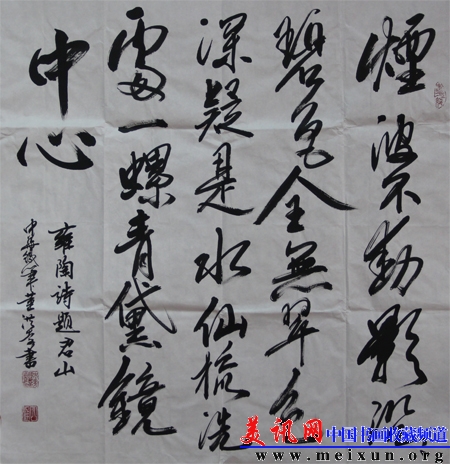 煙波不動影沉
碧色全無翠色
深疑是水仙梳洗
處一螺青黛鏡
中心
雍陶詩題君山
董洪書
美讯网 中国书画收藏频道
www.meixun.org